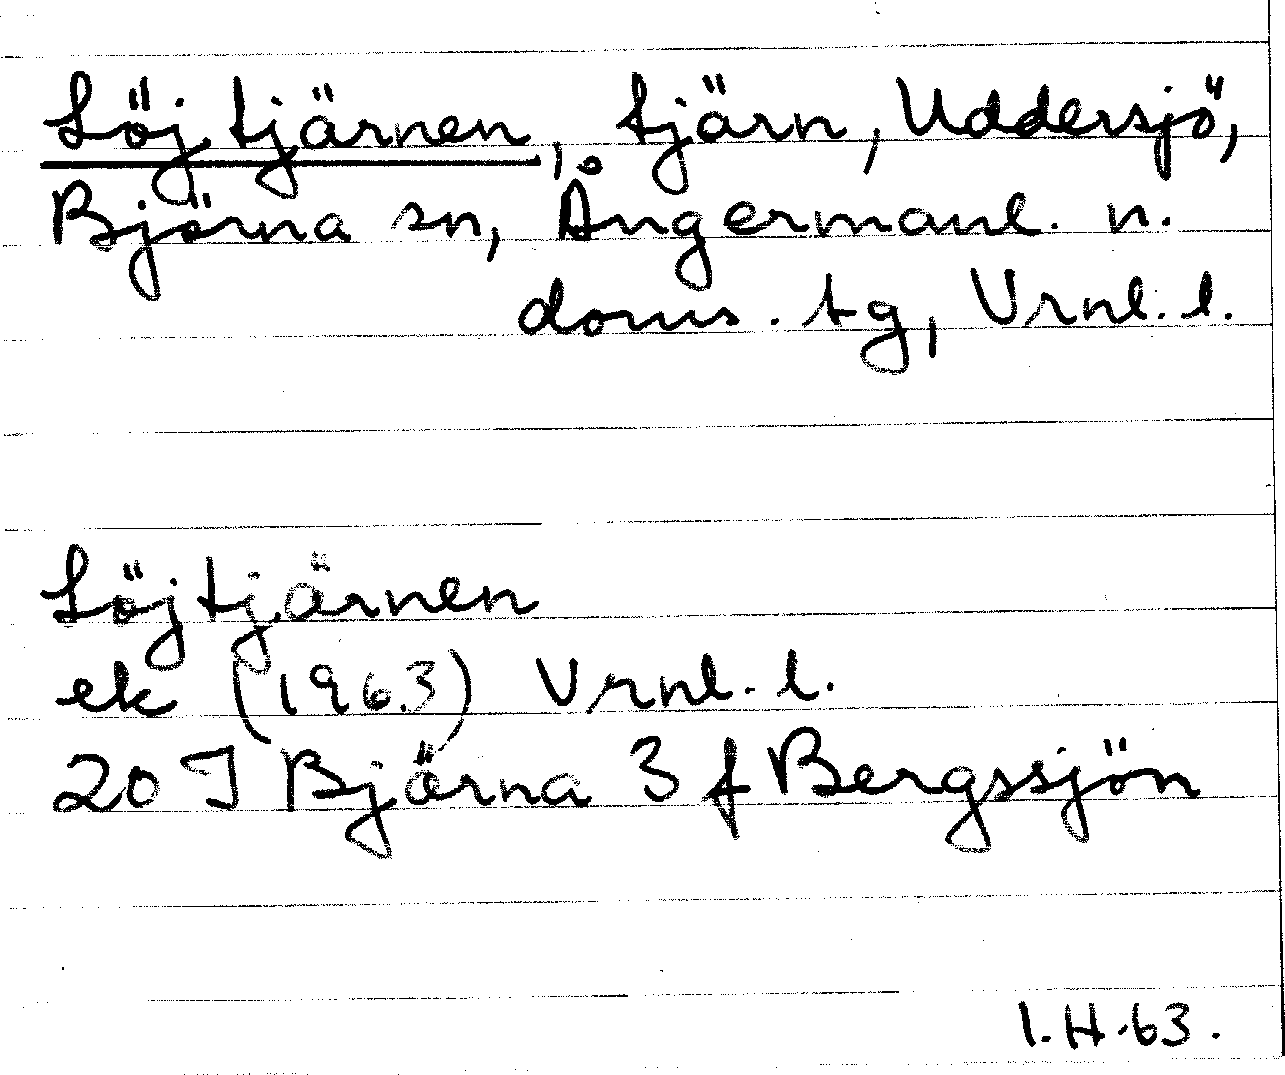 Löjtjärnen, tjärn, Uddersjö,
Björna sn, Ångermanl. n.
doms. tg, Vrnl. l.
Löjtjärnen
ek (1963) Vrnl. l.
20 J Björna 3 f Bergssjön
I.H.63.